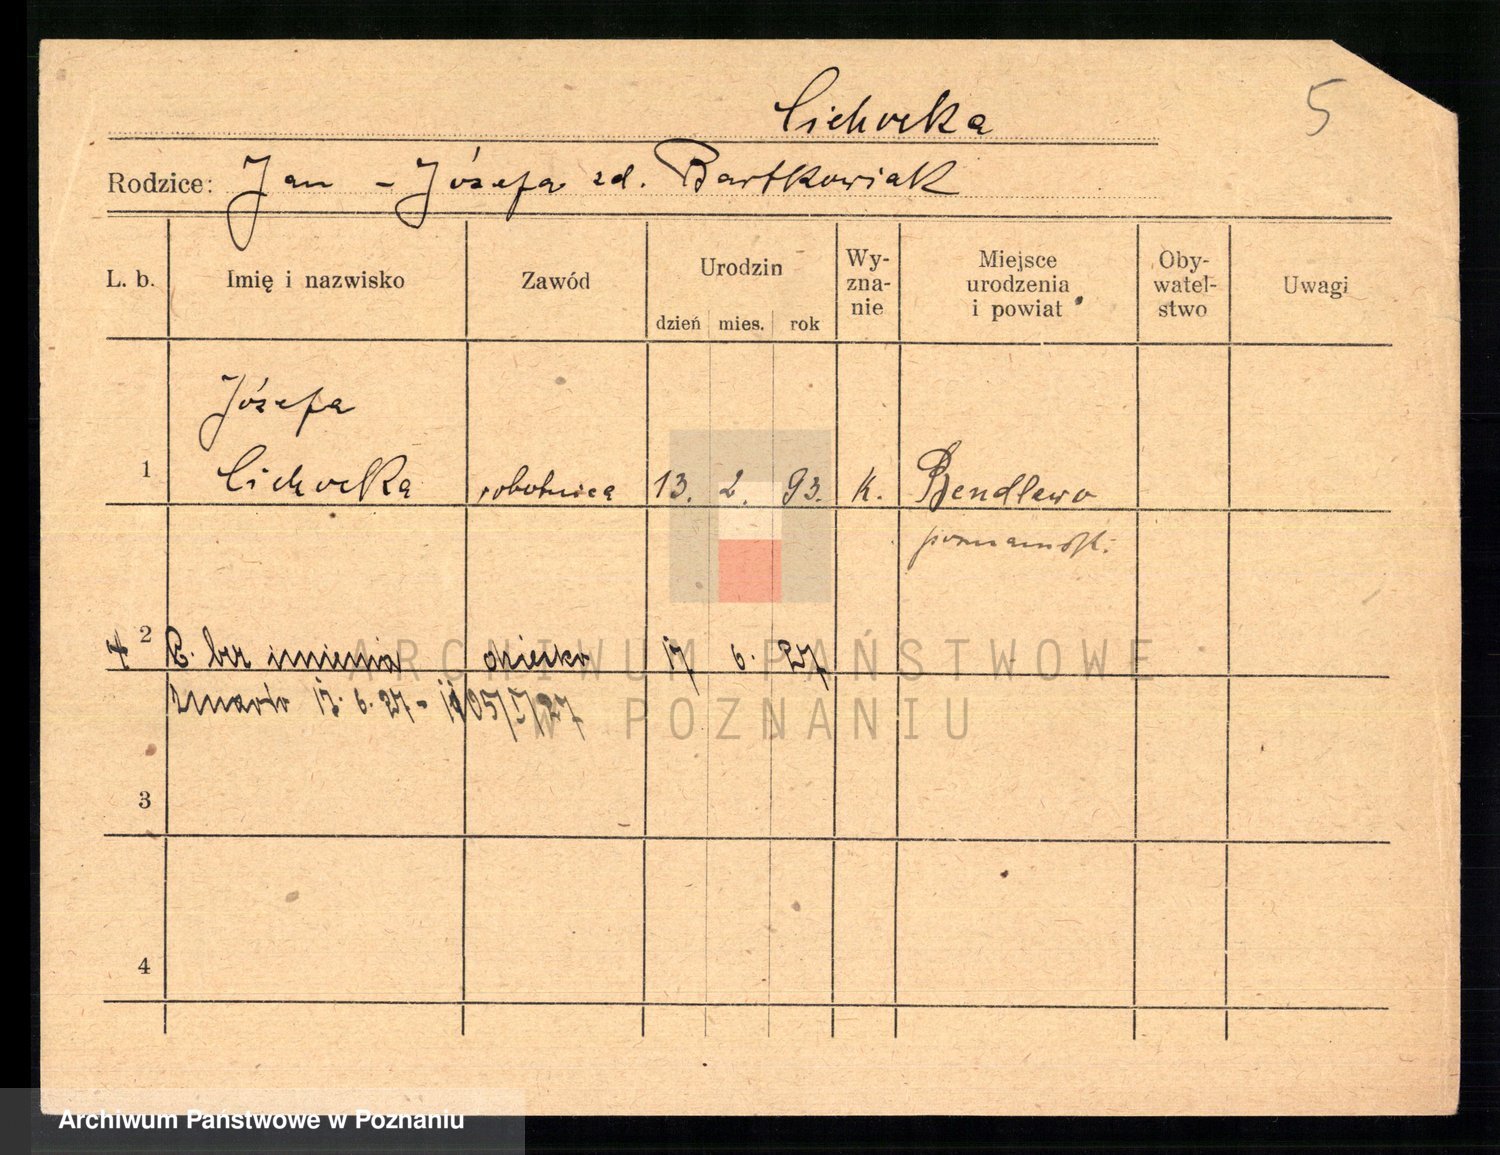 Cichocka
5
Rodzice: Jan - Józefa zd. Bartkowiak
L. b. Imię i nazwisko Zawód Urodzin dzień mies. rok Wy-zna-nie Miejsce urodzenia i powiat Oby-watel-stwo Uwagi
Józefa
1 Cichocka robotnica 13. 2. 93. k. Bendlewo
2 C. bez imienia dziecko 17 6. 27
17. 6. 27 -
3
4
ARCHIWUM PAŃSTWOWE
W POZNANIU
Archiwum Państwowe w Poznaniu